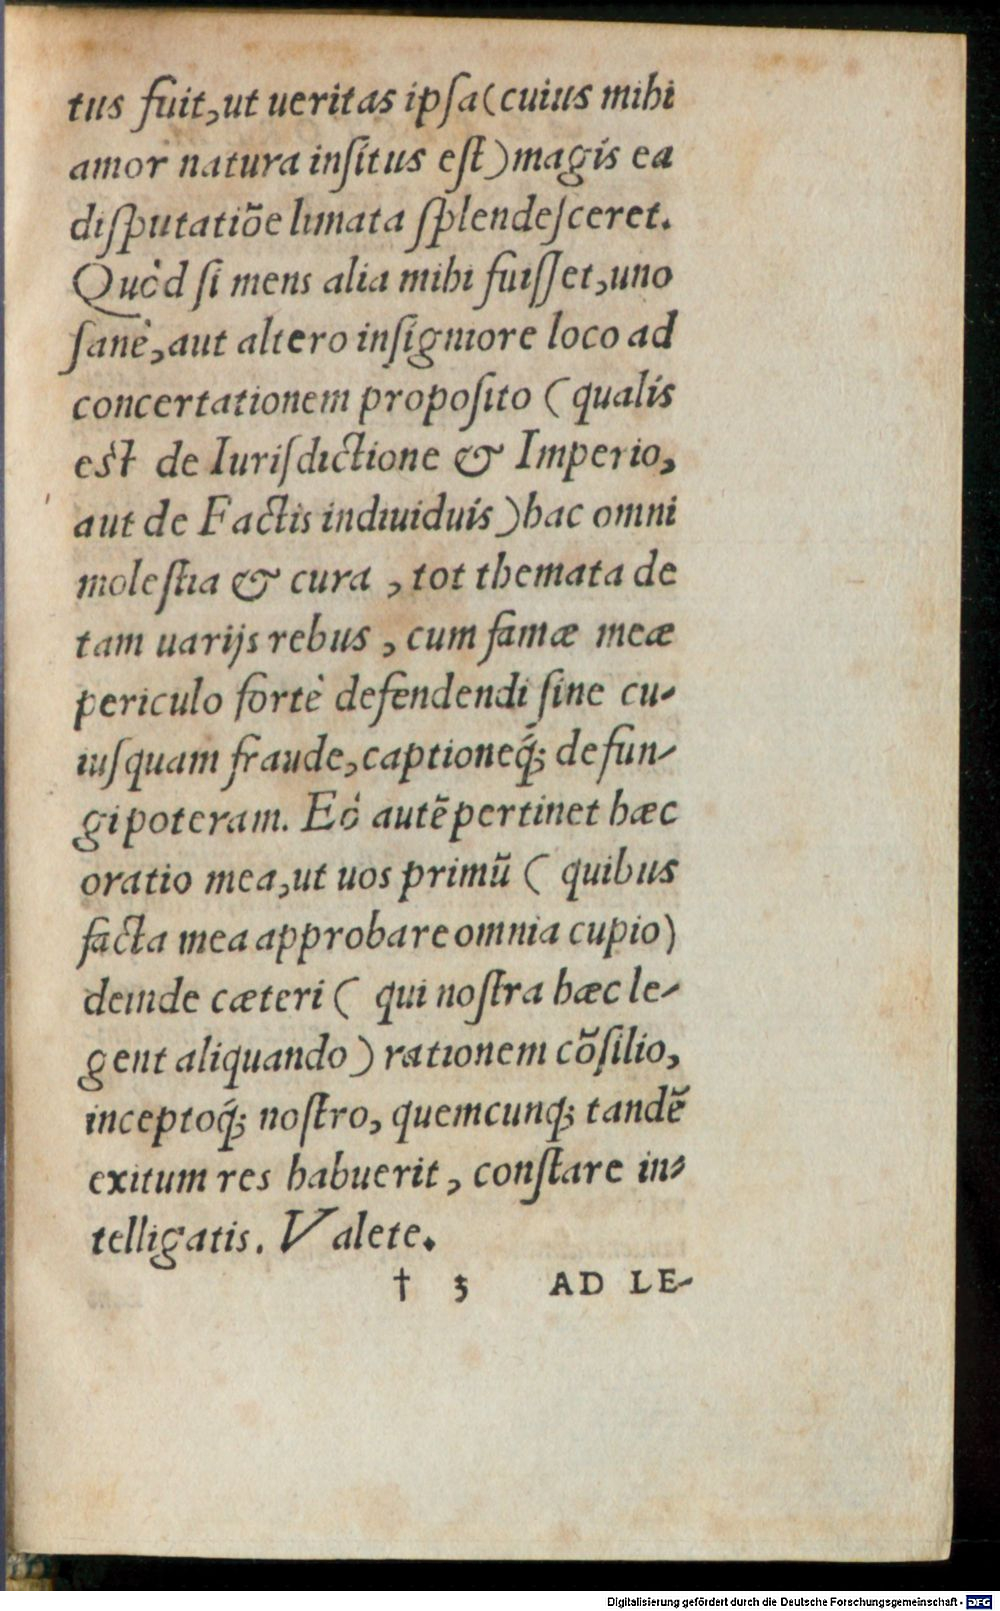 tus fuit, ut ueritas ipſa (cuius mihi
amor natura inſitus eſt) magis ea
diſputatiõe limata ſplendeſceret.
Quòd ſi mens alia mihi fuiſſet, uno
ſanè, aut altero inſigniore loco ad
concertationem propoſito ( qualis
est de Iuriſdictione & Imperio,
aut de Factis indiuiduis ) hac omni
moleſtia & cura , tot themata de
tam uarijs rebus , cum famæ meæ
periculo fortè defendendi ſine cu-
iuſquam fraude, captioneq́; defun-
gi poteram. Eò autẽ pertinet hæc
oratio mea, ut uos primũ ( quibus
facta mea approbare omnia cupio)
deinde cæteri ( qui noſtra hæc le-
gent aliquando ) rationem cõſilio,
inceptoq́; noſtro, quemcunq; tandẽ
exitum res habuerit , conſtare in-
telligatis. Valete.
† 3 AD LE-
Digitalisierung gefördert durch die Deutsche Forschungsgemeinschaft - DFG